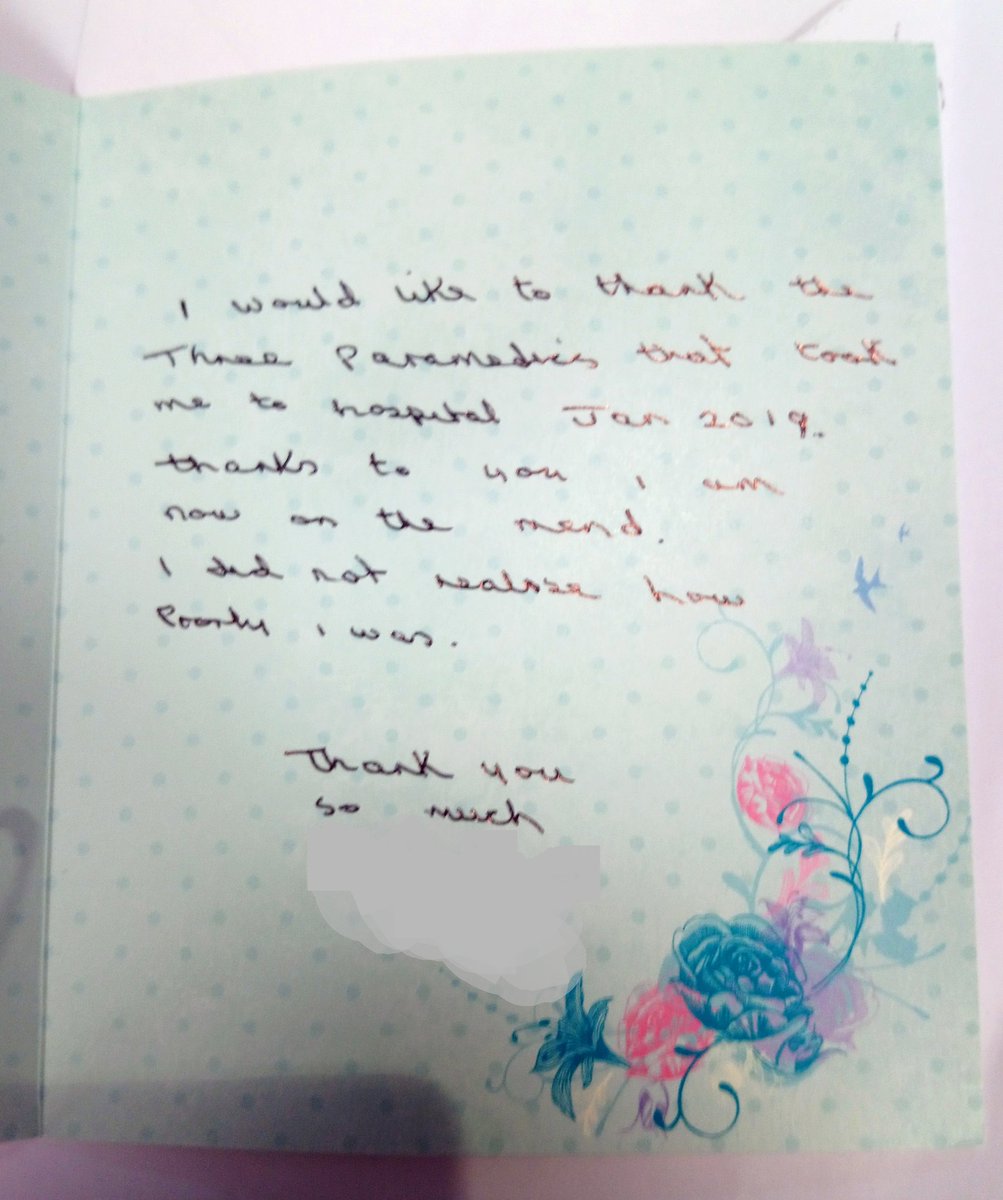 I would like to thank the
Three Paramedics that took
me to hospital Jan 2019.
thanks to you I am
now on the mend.
I did not realise how
Poorly I was.
Thank you
so much